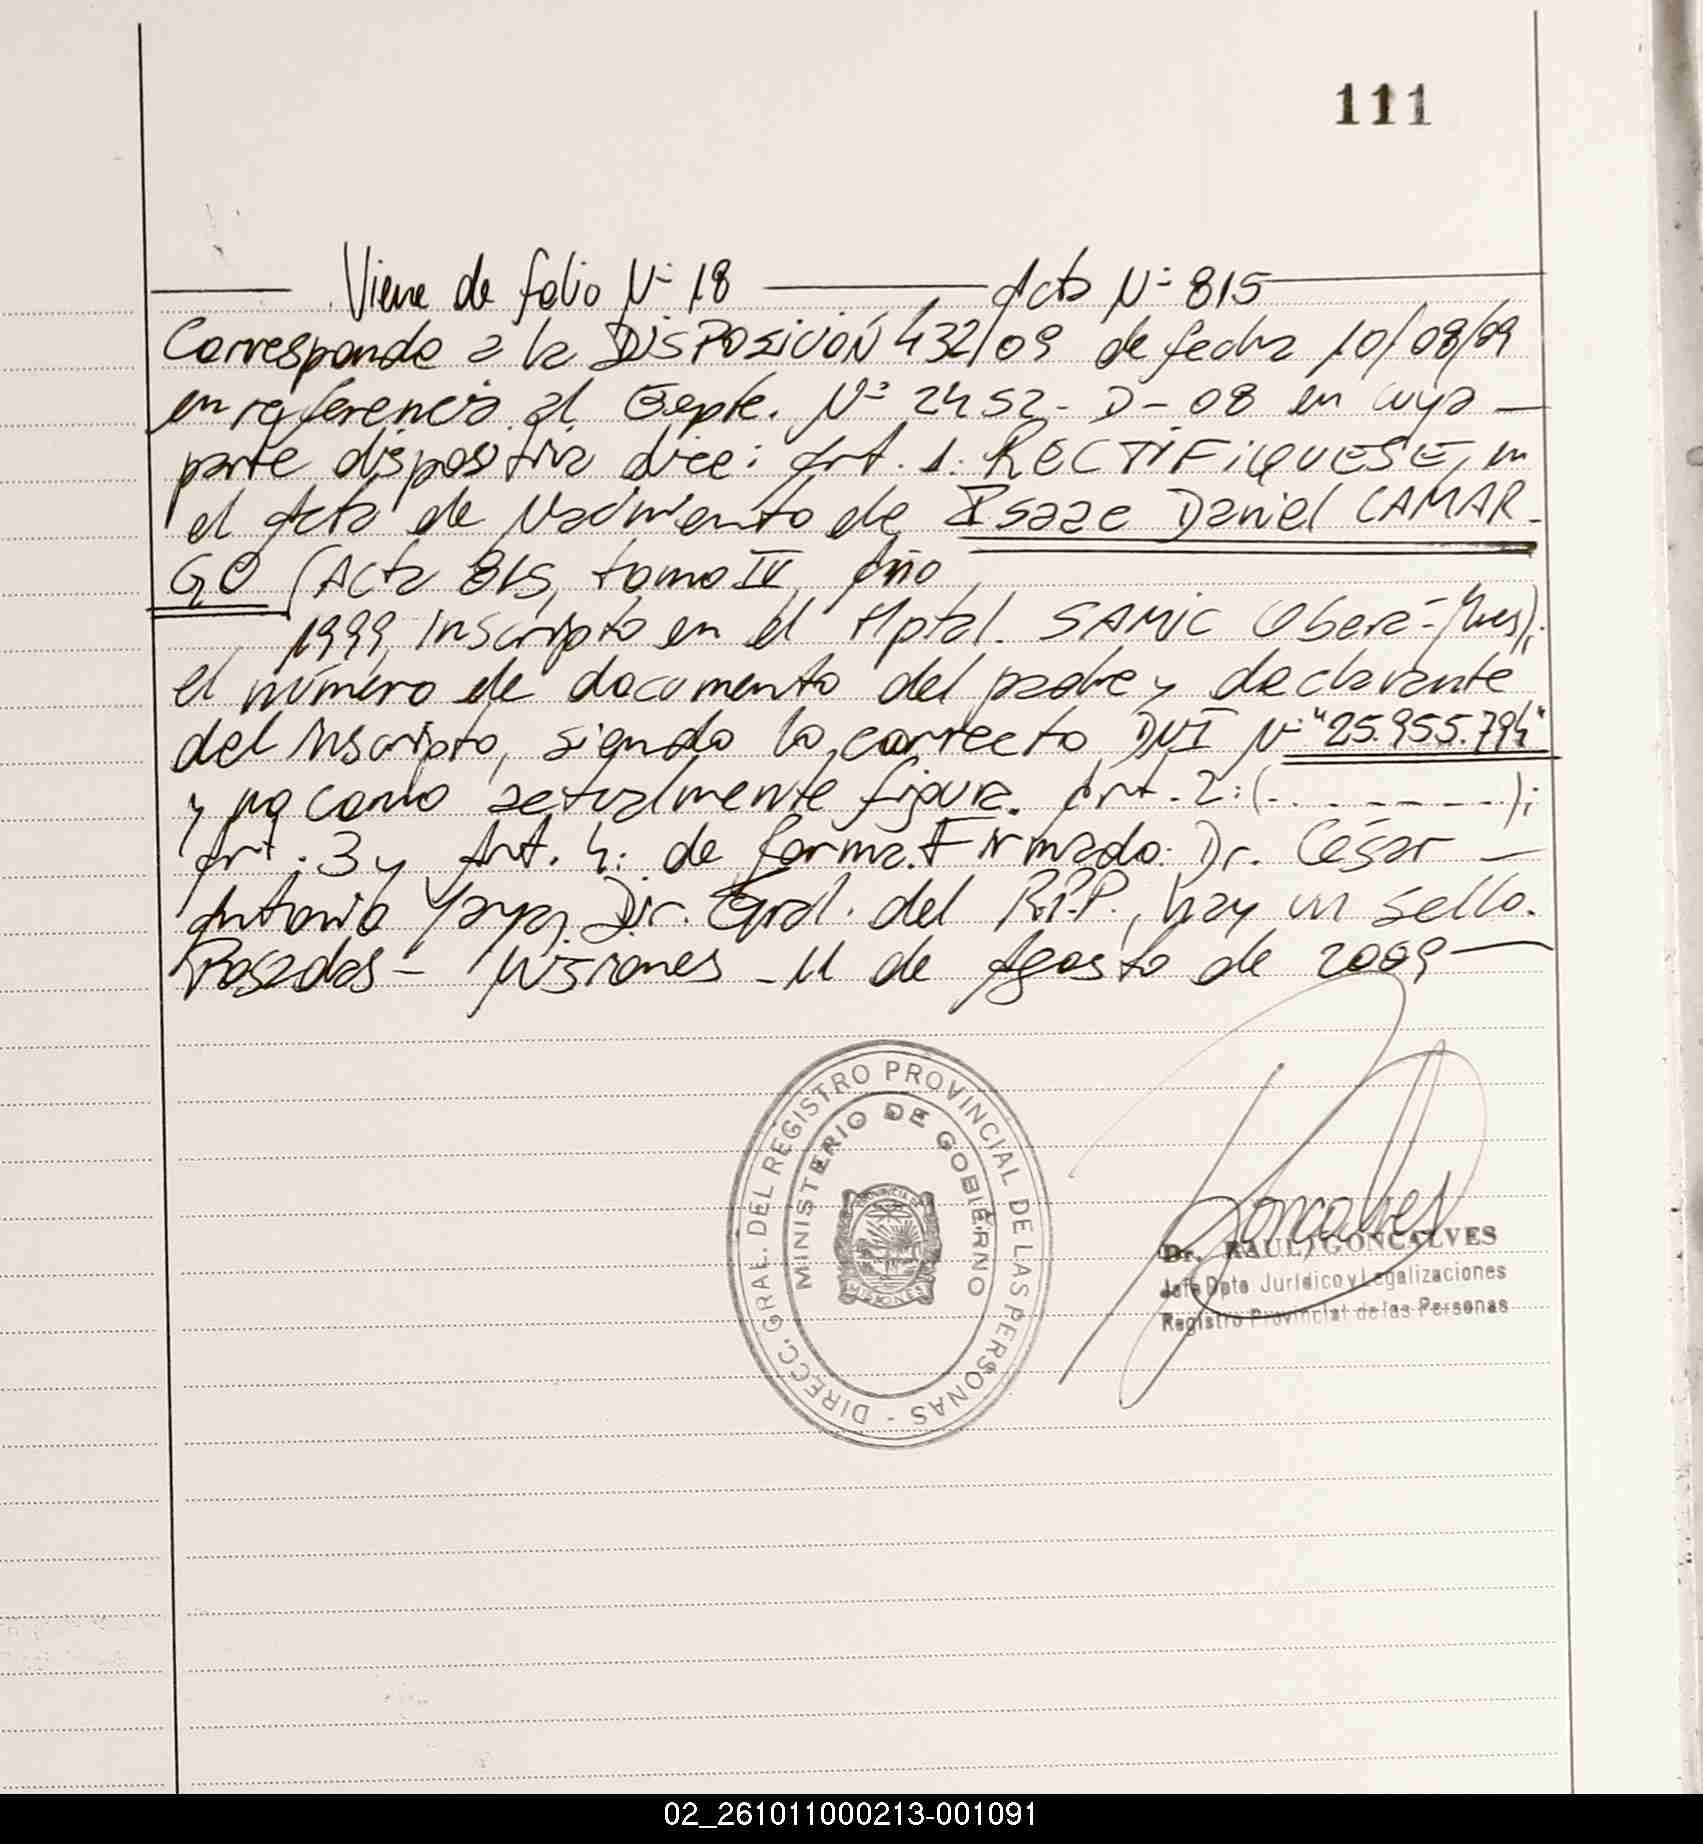 111
Viene de folio Nº 18 Acta Nº 815
Corresponde a la DISPOSICIÓN 432/09 de fecha 10/08/09
en referencia al Expte. Nº 2452-D-08 en cuya
parte dispositiva dice: Art. 1: RECTIFIQUESE, en
el Acta de Nacimiento de Isaac Daniel CAMAR-
GO (Acta 815, tomo IV, Año
1999, inscripto en el Hptal. SAMIC Oberá-Mnes);
el número de documento del padre y declarante
del inscripto, siendo lo correcto DNI Nº "25.955.794"
y no como actualmente figura. Art. 2: (. _ _ _ _ _ _ .);
Art. 3 y Art. 4: de forma. Firmado: Dr. César
Antonio Yaya, Dir. Gral. del R.P.P., hay un sello.
Posadas - Misiones - 11 de Agosto de 2009
DIRECC. GRAL. DEL REGISTRO PROVINCIAL DE LAS PERSONAS -
MINISTERIO DE GOBIERNO
PROVINCIA DE
MISIONES
Goncalves
Dr. RAUL GONCALVES
Jefe Dpto Jurídico y Legalizaciones
Registro Provincial de las Personas
02_261011000213-001091